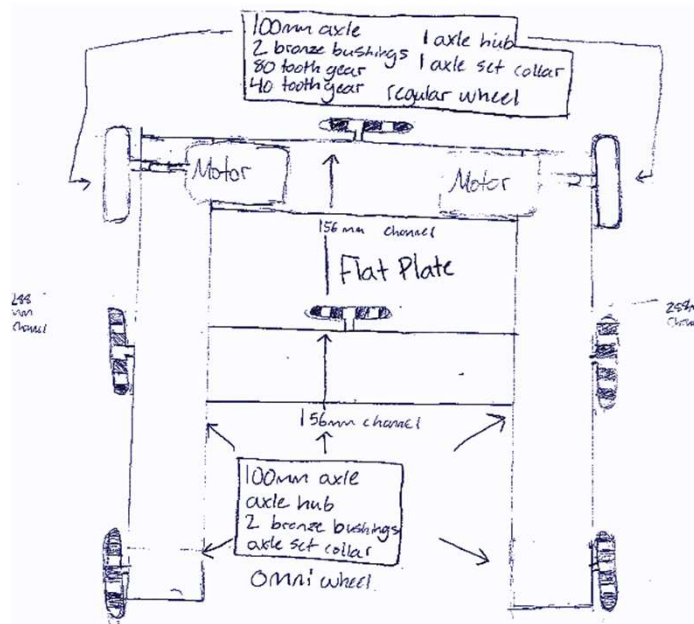 100mm axle
2 bronze bushings
80 tooth gear
40 tooth gear
1 axle hub
1 axle set collar
regular wheel
Motor
Motor
156mm channel
Flat Plate
288
mm
channel
288
156mm channel
100mm axle
axle hub
2 bronze bushings
axle set collar
omni wheel